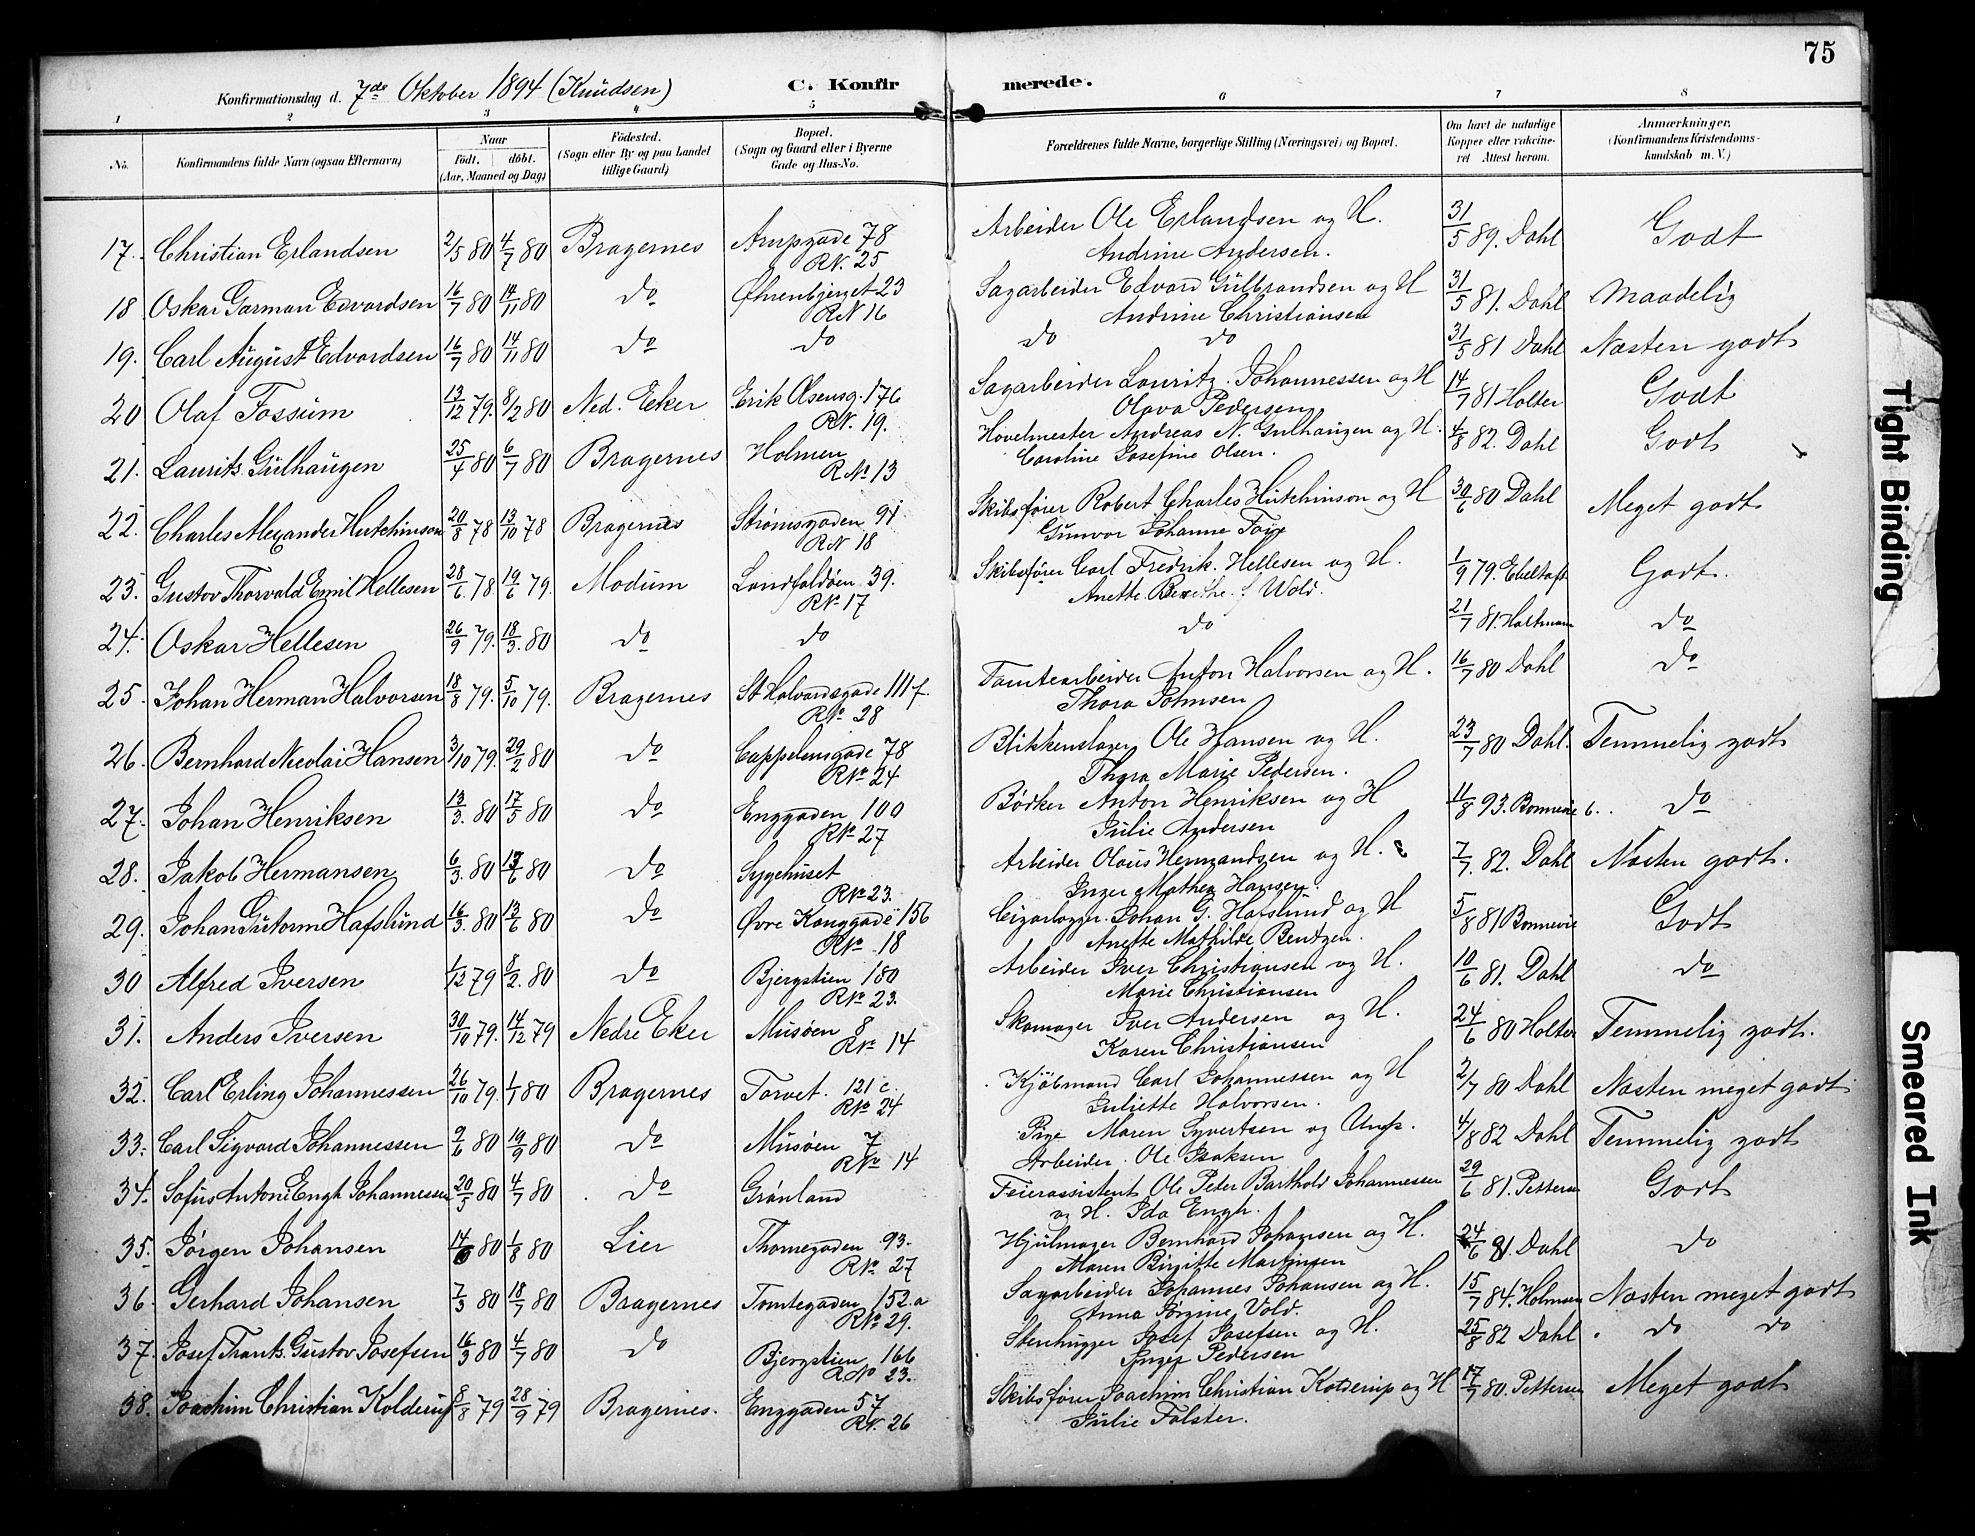 75
Konfirmationsdag d. 7de Oktober 1894 (Knudsen) C. Konfirmerede.
1 2 3 4 5 6 7 8
No. Konfirmandens fulde Navn (ogsaa Efternavn) Naar födt. döbt. (Aar, Maaned og Dag) Födested. (Sogn eller By og paa Landet tillige Gaard) Bopæl. (Sogn og Gaard eller i Byerne Gade og Hus-No. Forældrenes fulde Navne, borgerlige Stilling (Næringsvei) og Bopæl. Om havt de naturlige Kopper eller vakcineret Attest herom. Anmærkninger. (Konfirmandens Kristendomskundskab m. V.)
17. Christian Erlandsen 2/5 80 4/7 80 Bragernes 78 RN. 25 Arbeider Ole Erlandsen og H. Andrine Andersen. 31/5 89. Dahl Godt
18 Oskar Garman Edvardsen 16/7 80 14/11 80 do Øhrenbjerget 23 RN 16 Sagarbeider Edvard Gulbrandsen og H Andrine Christiansen 31/5 81. Dahl Maadelig
19. Carl August Edvardsen 16/7 80 14/11 80 do do do do 31/5 81 Dahl Næsten godt
20 Olaf Fossum 13/12 79. 8/2 80 Ned. Eker Erik Olsensg. 176 RN. 19. Sagarbeider Lauritz Johannessen og H Olava Pedersen 14/7 81 Holter Godt
21. Laurits Gulhaugen 25/4 80 6/7 80 Bragernes Holmen RNo 13 Hovelmester Andreas N. Gulhaugen og H. Caroline Josefine Olsen. 4/8 82. Dahl Godt
22. Charles Alexander Hutchinson 20/8 78 13/10 78 Bragernes Strømsgaden 91 RN 18 Skibsfører Robert Charles Hutchinson og H Gunvor Johanne 30/6 80 Dahl Meget godt
23. Gustav Thorvald Emil Hellesen 28/6 78. 19/6 79. Modum Landfaldøen 39. RNo 17 Skibsfører Carl Fredrik Hellesen og H. Anette Wold. 1/9 79. Ebeltoft Godt.
24. Oskar Hellesen 26/9 79. 18/3. 80 do do do 21/7 81. do
25. Johan Herman Halvorsen 18/8 79. 5/10 79. Bragernes St Halvardsgade 111 f. RNo 28 Tomtearbeider Anton Halvorsen og H. Thora Johnsen 16/7 80 Dahl do
26. Bernhard Nicolai Hansen 3/10 79. 29/2 80 do Cappelensgade 78 RNo 24 Blikkenslager Ole Hansen og H. Thora Marie Pedersen. 23/7 80 Dahl. Temmelig godt
27. Johan Henriksen 13/3. 80 17/5 80 do Enggaden 100 RNo 27 Bødker Anton Henriksen og H Julie Andersen 11/8 93. Bonnevie do
28. Jakob Hermansen 6/3. 80 13/6 80 do Sygehuset RNo 23. Arbeider Olaus Hermandsen og H. Inger Mathea Hansen. 7/7. 82. Dahl Næsten godt.
29. Johan Gutorm Hafslund 16/3. 80 13/6 80 do Øvre Konggade 156 RNo 18 Cigarlægger Johan G. Hafslund og H Anette Mathilde Bentzen. 5/8 81 Bonnevie Godt
30 Alfred Iversen 1/12 79 8/2. 80 do Bjergstien 180 RNo 23. Arbeider Iver Christiansen og H. Marie Christiansen 10/6 81. Dahl do
31. Anders Iversen 30/10 79. 14/12 79 Nedre Eker Musøen 8 RNo 14 Skomager Iver Andersen og H. Karen Christiansen 24/6 80 Holter Temmelig godt.
32. Carl Erling Johannessen 26/10 79. 1/1 80 Bragernes Torvet. 121 c. RNo 24 Kjøbmand Carl Johannessen og H Juliette Halvorsen. 2/7 80 Dahl Næsten meget godt
33. Carl Sigvard Johannessen 9/6 80 19/9 80 do Musøen 7 RNo 14 Pige Maren Syvertsen og Ungk. Arbeider Ole Isaksen 4/8 82 Dahl Temmelig godt
34. Sofus Anton Engh Johannessen 20/5 80 4/7 80 do Grønland Feierassistent Ole Peter Barthold Johannessen og H. Ida Engh. 29/6 81. Pettersen Godt
35. Jørgen Johansen 14/6 80 1/8 80 Lier Thornegaden 93. RNo 27 Hjulmager Bernhard Johansen og H. Maren Birgitte Martinsen 24/6 81. Dahl do
36. Gerhard Johansen 7/3 80 18/7 80 Bragernes Tomtegaden 152.a RNo 29. Sagarbeider Johannes Johansen og H. Anna Jørgine Vold. 15/7 84. Næsten meget godt
37. Josef Frants Gustav Josefsen 16/3 80 4/7 80 do Bjergstien 166 RNo 23. Stenhugger Josef Josefsen og H. Inger Pedersen 25/8 82 Dahl do do
38. Joachim Christian Kolderup 8/8 79 28/9 79 Bragernes. Enggaden 57 RN. 26 Skibsfører Joachim Christian Kolderup og H Julie Falster. 17/7 80. Pettersen Meget godt
Tight Binding
Smeared Ink